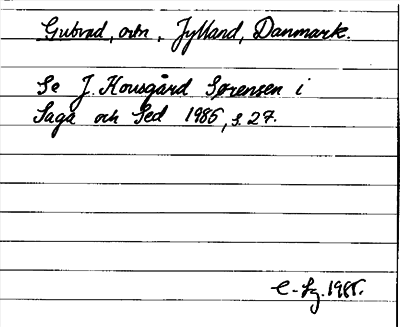 Gubrød, ortn., Jylland, Danmark.
Se J. Kousgård Sørensen i
Saga och Sed 1985, s. 27.
1985.